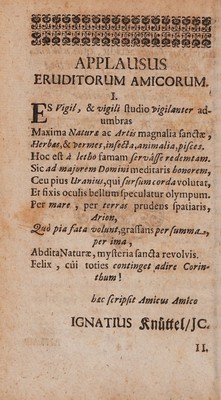 APPLAUSUS
ERUDITORUM AMICORUM.
I.
ES Vigil, & vigili studio vigilanter ad-
umbras
Maxima Naturæ ac Artis magnalia sanctæ,
Herbas, & vermes, insecta, animalia, pisces.
Hoc est à letho famam servâsse redemtam.
Sic ad majorem Domini meditaris honorem,
Ceu pius Uranius, qui sursum corda volutat,
Et fixis oculis bellum speculatur olympum.
Per mare, per terras prudens spatiaris,
Arion,
Quò pia fata volunt, grassans per summa,
per ima,
Abdita Naturæ, mysteria sancta revolvis.
Felix, cúi toties continget adire Corin-
thum!
hæc scripsit Amicus Amico
IGNATIUS Knüttel/JC.
II.